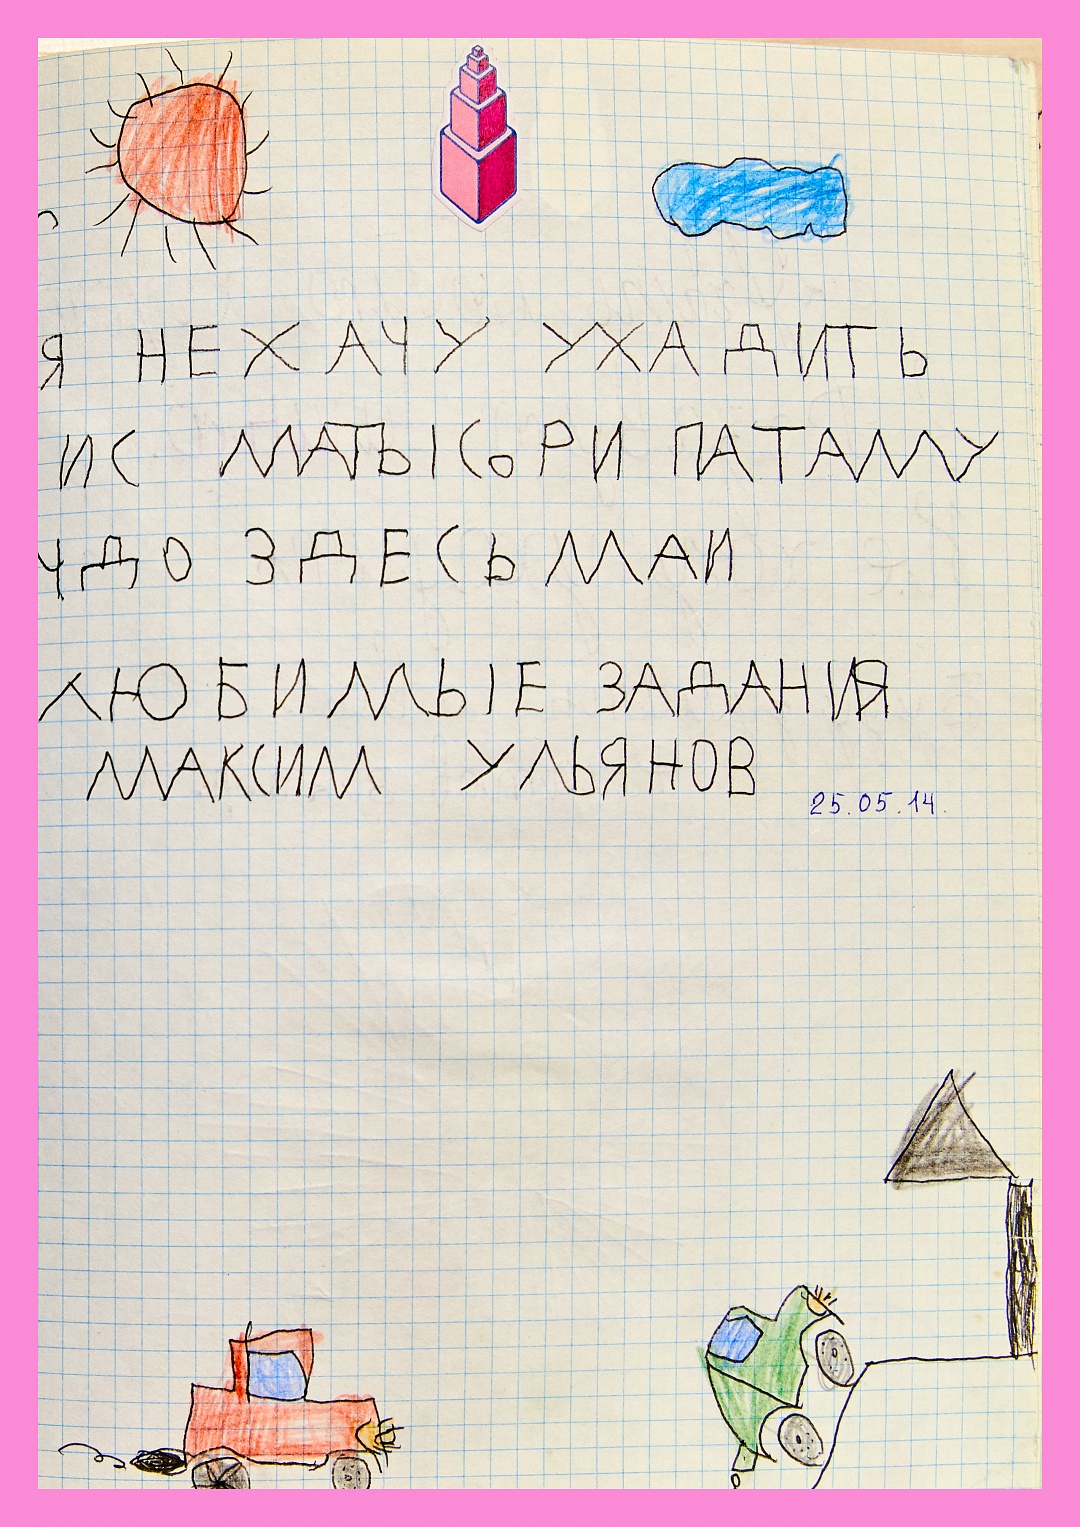 Я НЕ ХАЧУ УХАДИТЬ
ИС МАТЫСОРИ ПАТАМУ
ЧДО ЗДЕСЬ МАИ
ЛЮБИМЫЕ ЗАДАНИЯ
МАКСИМ УЛЬЯНОВ
25.05.14.